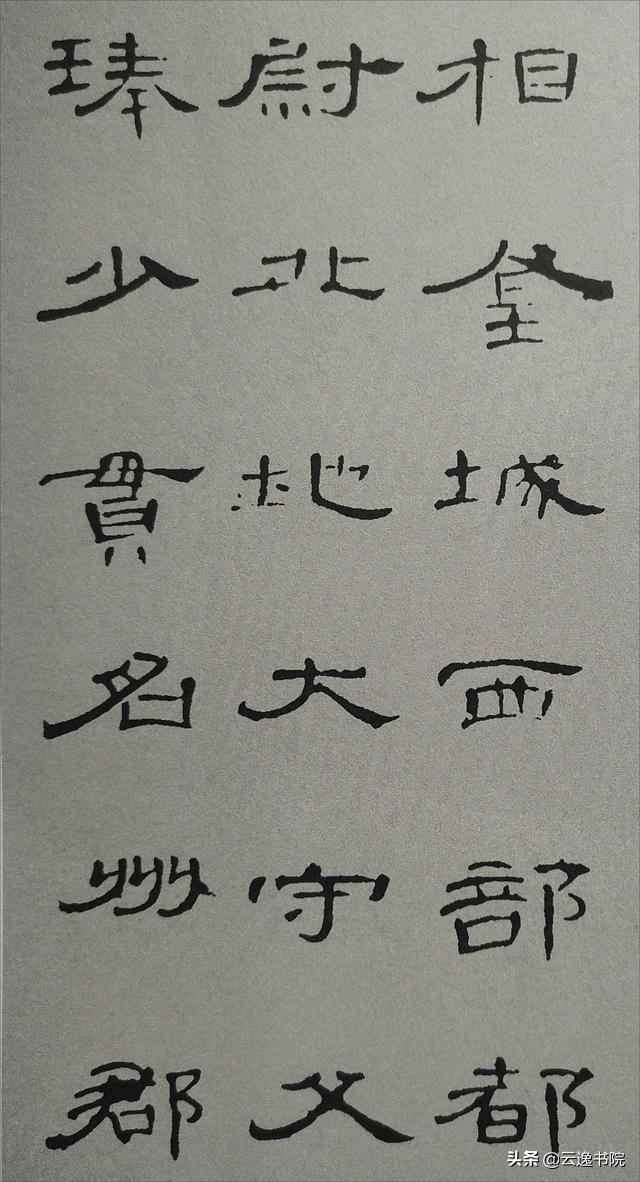 相金城西部都
尉北地大守父
琫少貫名州郡
头条 @云逸书院